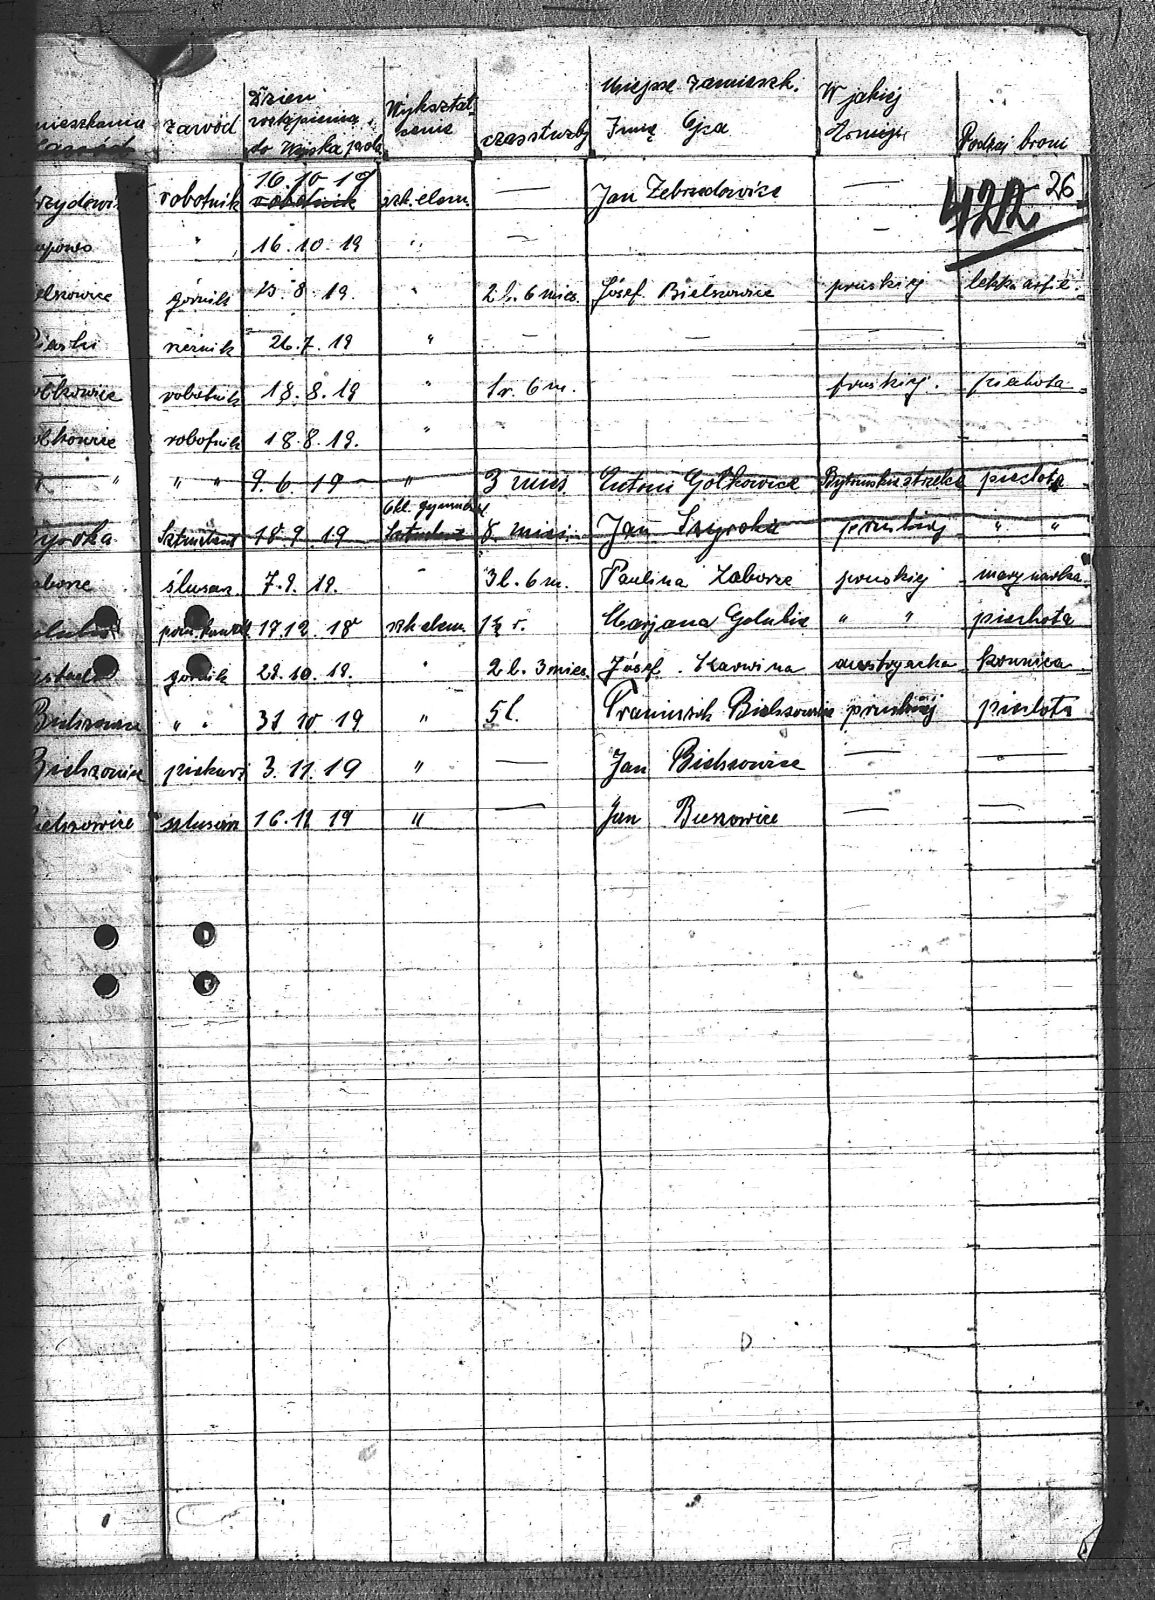 mieszkania zawód Dzień wstąpienia do Wojska polsk. Wykształcenie czas służby Miejsc. zamieszk. Imię Ojca W jakiej Armji Rodzaj broni
robotnik 16.10.19 szk. elem. — Jan —
422 26
" 16.10.19 " — —
górnik 13.8.19. " 2 l. 6 mies. Józef Bielszowice pruskiej lekka artil.
rzeźnik 26.7.19 " — — — —
robotnik 18.8.19 " 1 r. 6 m. — pruskiej. piechota
robotnik 18.8.19. "
" " " " 9.6.19 " 3 mies. Antoni Gołkowice piechota
6 kl. gymnazjal.
18.9.19 8 mies. Jan Szyroka pruskiej " "
ślusarz 7.9.19. " 3 l. 6 m. Paulina Zaborze pruskiej marynarka
17.12.18 szk. elem. 1½ r. Marjana Golubie " " piechota
górnik 29.10.19. " 2 l. 3 mies. Józef. Karwina austryacka konnica
Bielszowice " " 31.10.19 " 5 l. Franciszek Bielszowice pruskiej piechota
Bielszowice piekarz 3.11.19 " — Jan Bielszowice — —
Bielszowice szlusarz 16.11.19 " — Jan Bieszowice — —